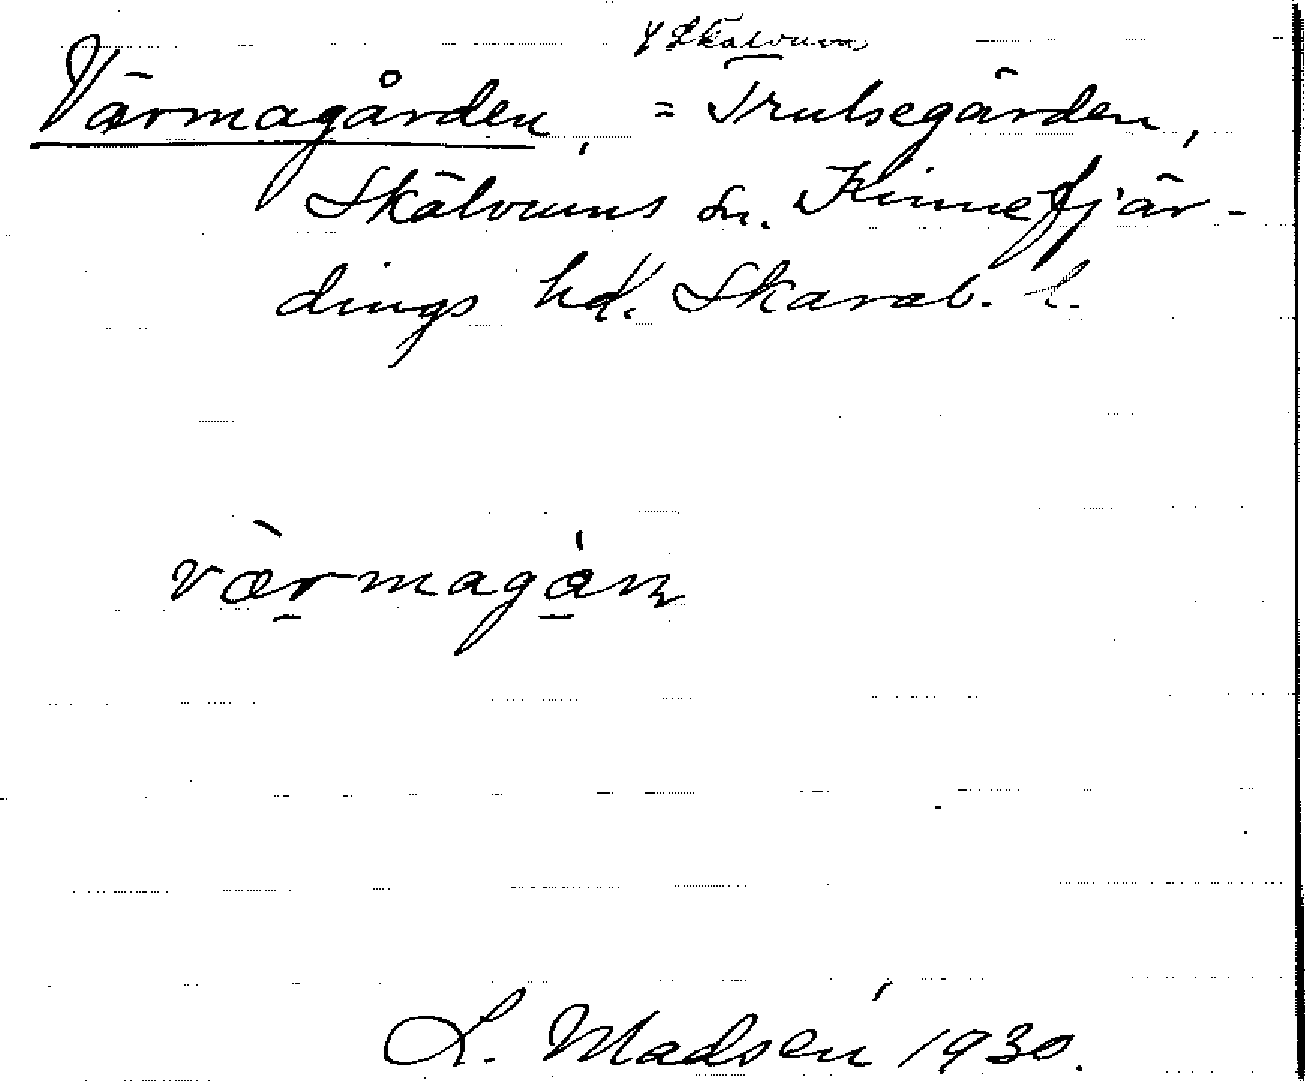 y Skälvum
Värmagården, = Trulsegården,
Skälvums sn. Kinnefjär-
dings hd. Skarab. l.
værmagán
L. Madsén 1930.